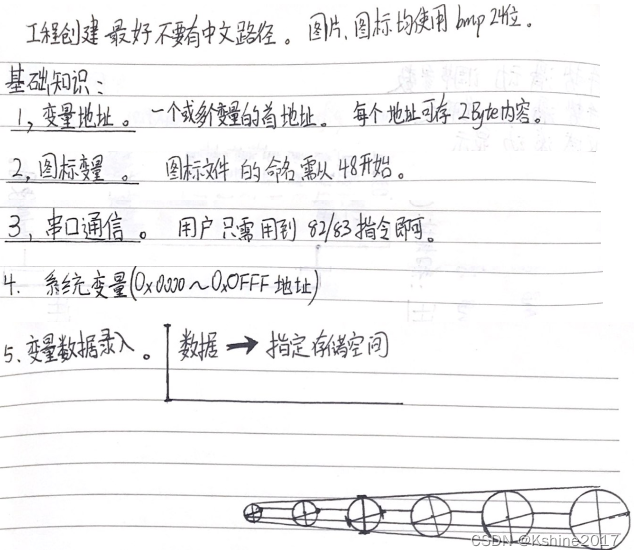 工程创建最好不要有中文路径。图片、图标均使用 bmp 24位。
基础知识：
1，变量地址。一个或多个变量的首地址。每个地址可存 2Byte内容。
2，图标变量。图标文件的命名需从48开始。
3，串口通信。用户只需用到 82/83 指令即可。
4. 系统变量(0x0000～0x0FFF 地址)
5、变量数据录入。数据 → 指定存储空间
CSDN @Kshine2017